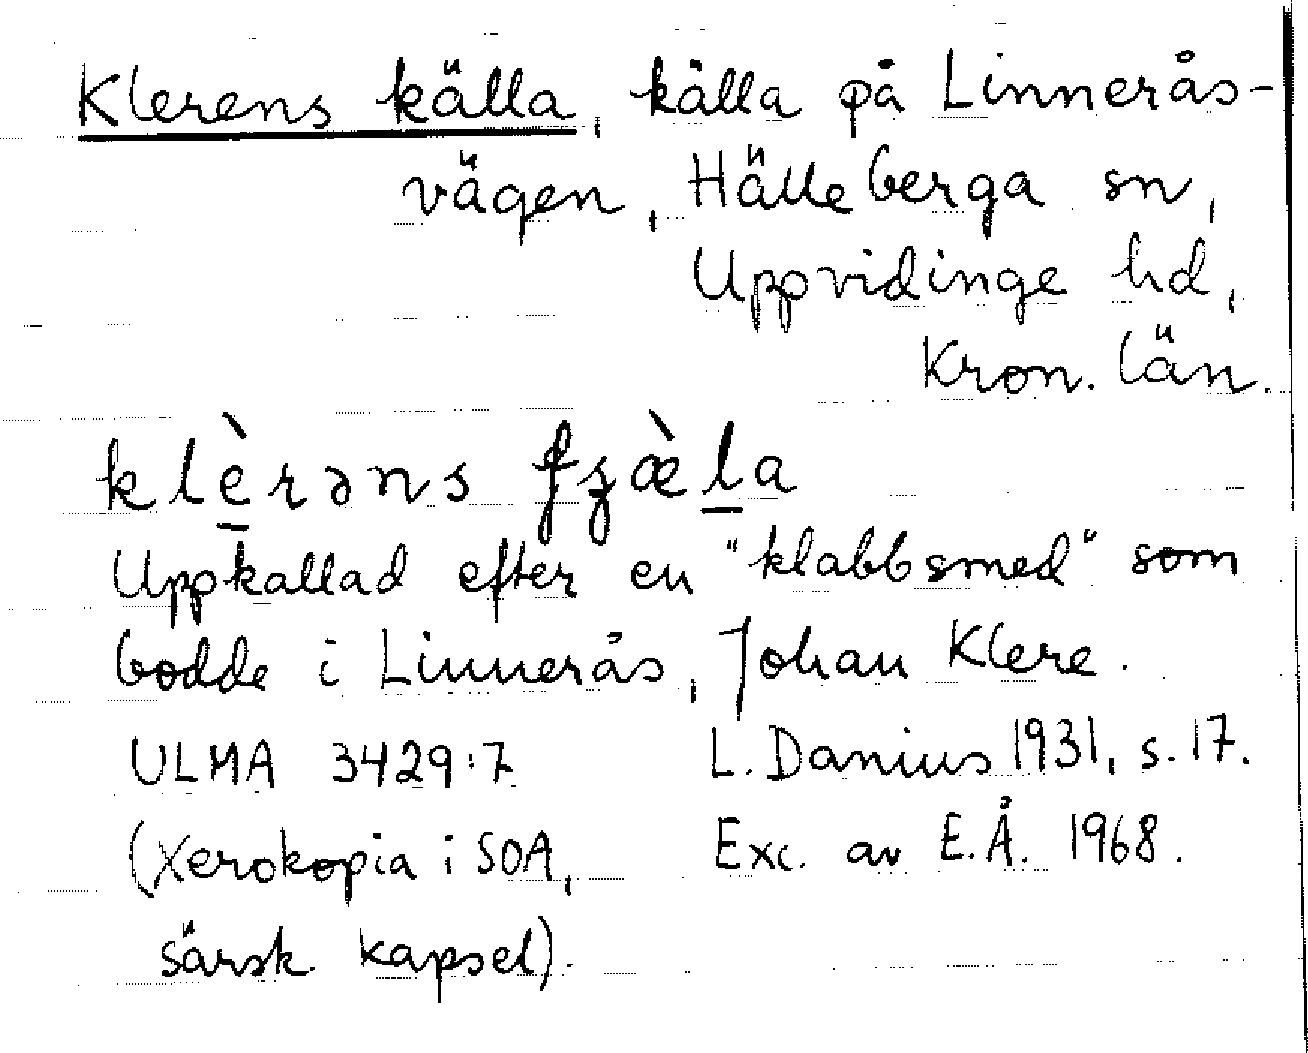 Klerens källa, källa på Linnerås-
vägen, Hälleberga sn,
Uppvidinge hd,
Kron. län.
klè̠rəns fʒæ̀l̠a
Uppkallad efter en "klabbsmed" som
bodde i Linnerås, Johan Klere.
ULMA 3429:7 L. Danius 1931, s. 17.
(Xerokopia i SOA, Exc. av E.Å. 1968.
särsk. kapsel).